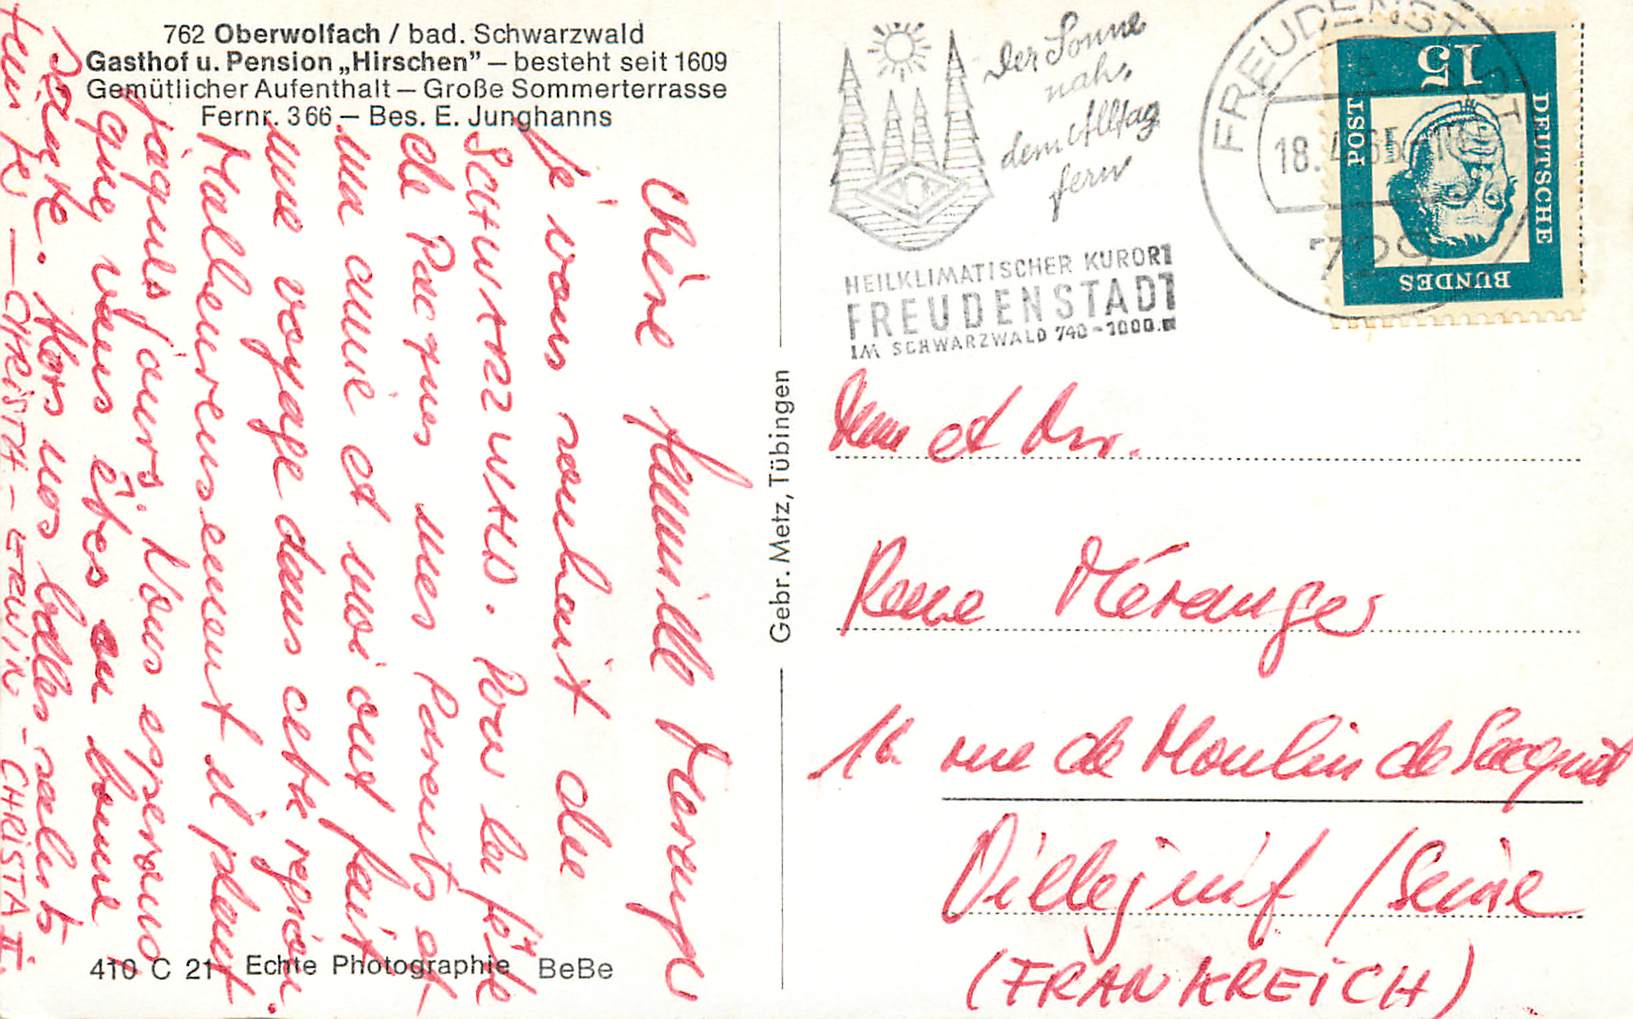 762 Oberwolfach / bad. Schwarzwald
Gasthof u. Pension „Hirschen" – besteht seit 1609
Gemütlicher Aufenthalt – Große Sommerterrasse
Fernr. 366 – Bes. E. Junghanns
Chère famille Meranger
je vous souhait du
SCHWARZWALD. Pour la fête
de Pacques mes Parents et
ma amie et moi ont fait
une voyage dans cette region.
Malheureusement il pleut
jaques jours. Nous esperons
que vous êtes en bonne
Alors nos belles saluts
CHRISTA - ERWIN - CHRISTA II.
410 C 21 Echte Photographie BeBe
Gebr. Metz, Tübingen
Der Sonne
nah,
dem Alltag
fern
HEILKLIMATISCHER KURORT
FREUDENSTADT
IM SCHWARZWALD 740-1000.m
FREUDENST
18.
729
15
DEUTSCHE
BUNDES
POST
Mme et Mr.
Rene Méranger
16 rue de Moulin de Sacquet
Villejuif / Seine
(FRANKREICH)